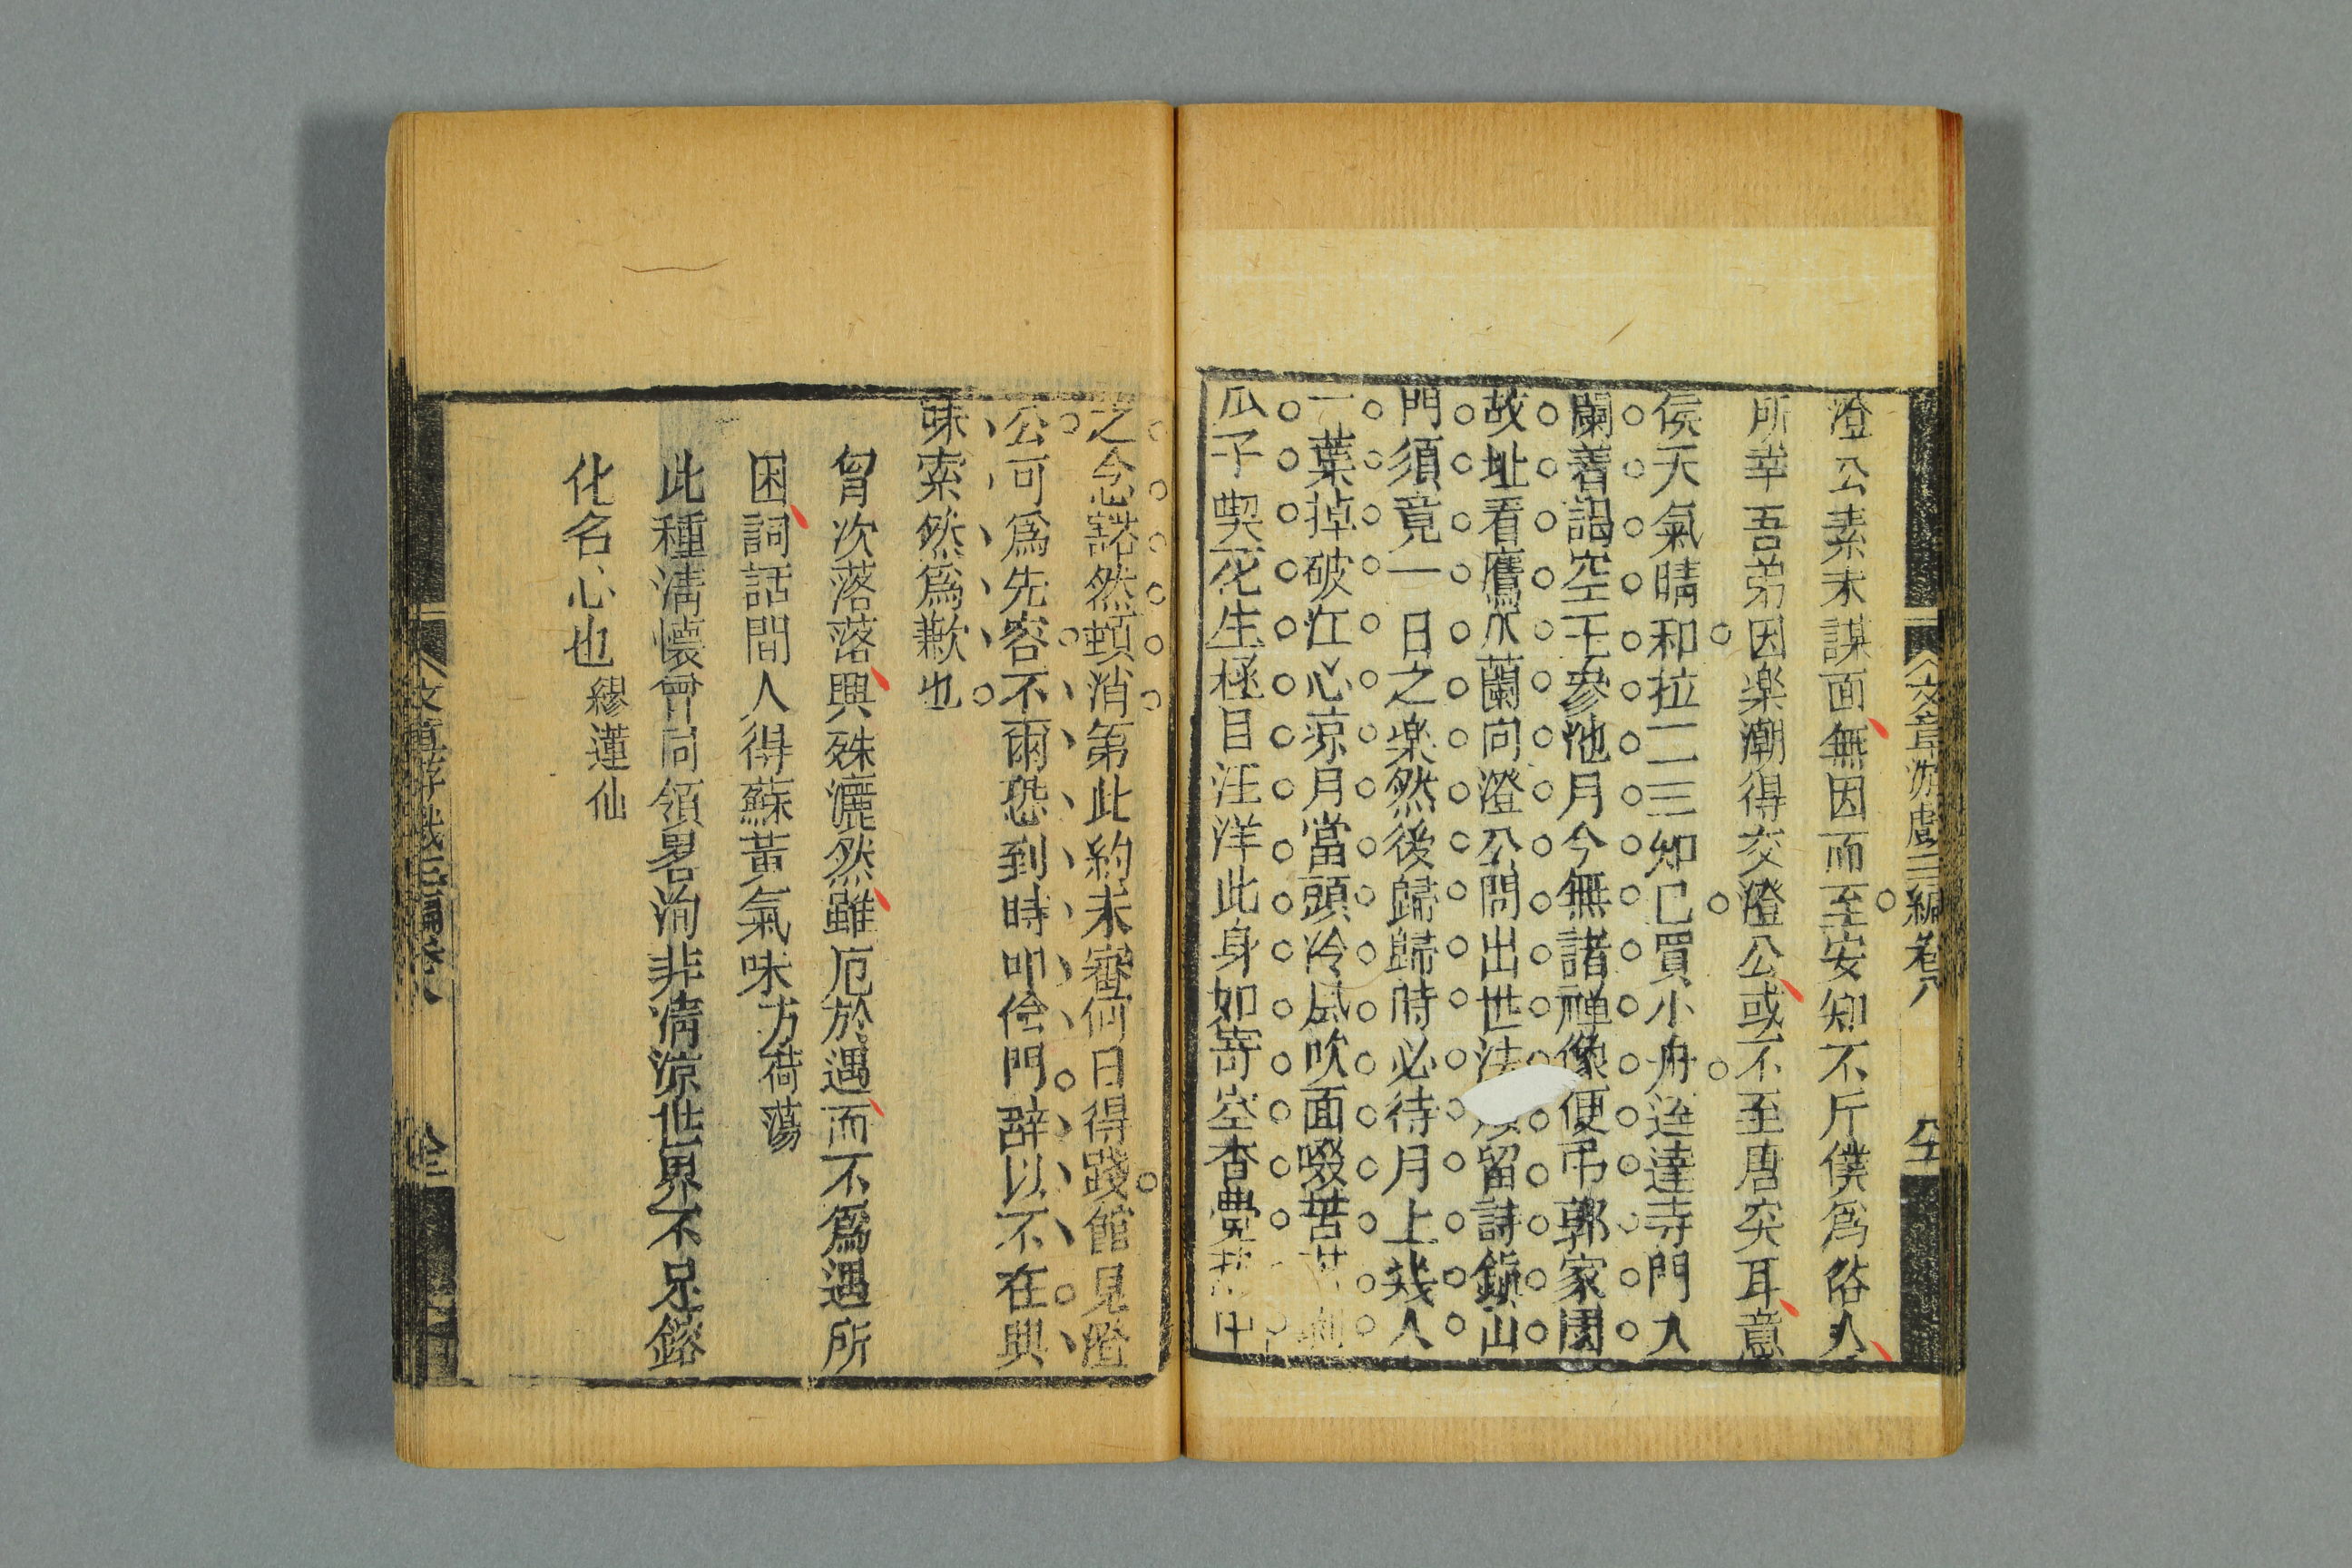 文章游戲三編卷八
仝
澄公素未謀面無因而至安知不斥僕爲俗人
所幸吾弟因樂潮得交澄公或不至唐突耳意
侯天氣晴和拉二三知已買小舟逕達寺門入
闌着謁空王參池月今無諸禅像便弔郭家園
故址看鷹爪蘭向澄公問出世法留詩鎮山
門須竟一日之樂然後歸歸時必待月上幾人
一葉掉破江心凉月當頭冷風吹面啜苦
瓜子喫花生極目汪洋此身如寄空杳覺中
之念豁然頓消第此約未審何日得踐館見澄
公可爲先容不爾恐到時叩佺門辭以不在興
味索然爲歉也
胷次落落興殊灑然雖厄於遇而不爲遇所
困詞話間人得蘇黃氣味方荷蕩
此種清懷曾同領畧洵非清凉世界不足鎔
化名心也繆蓮仙
文章游戲三編卷八
仝